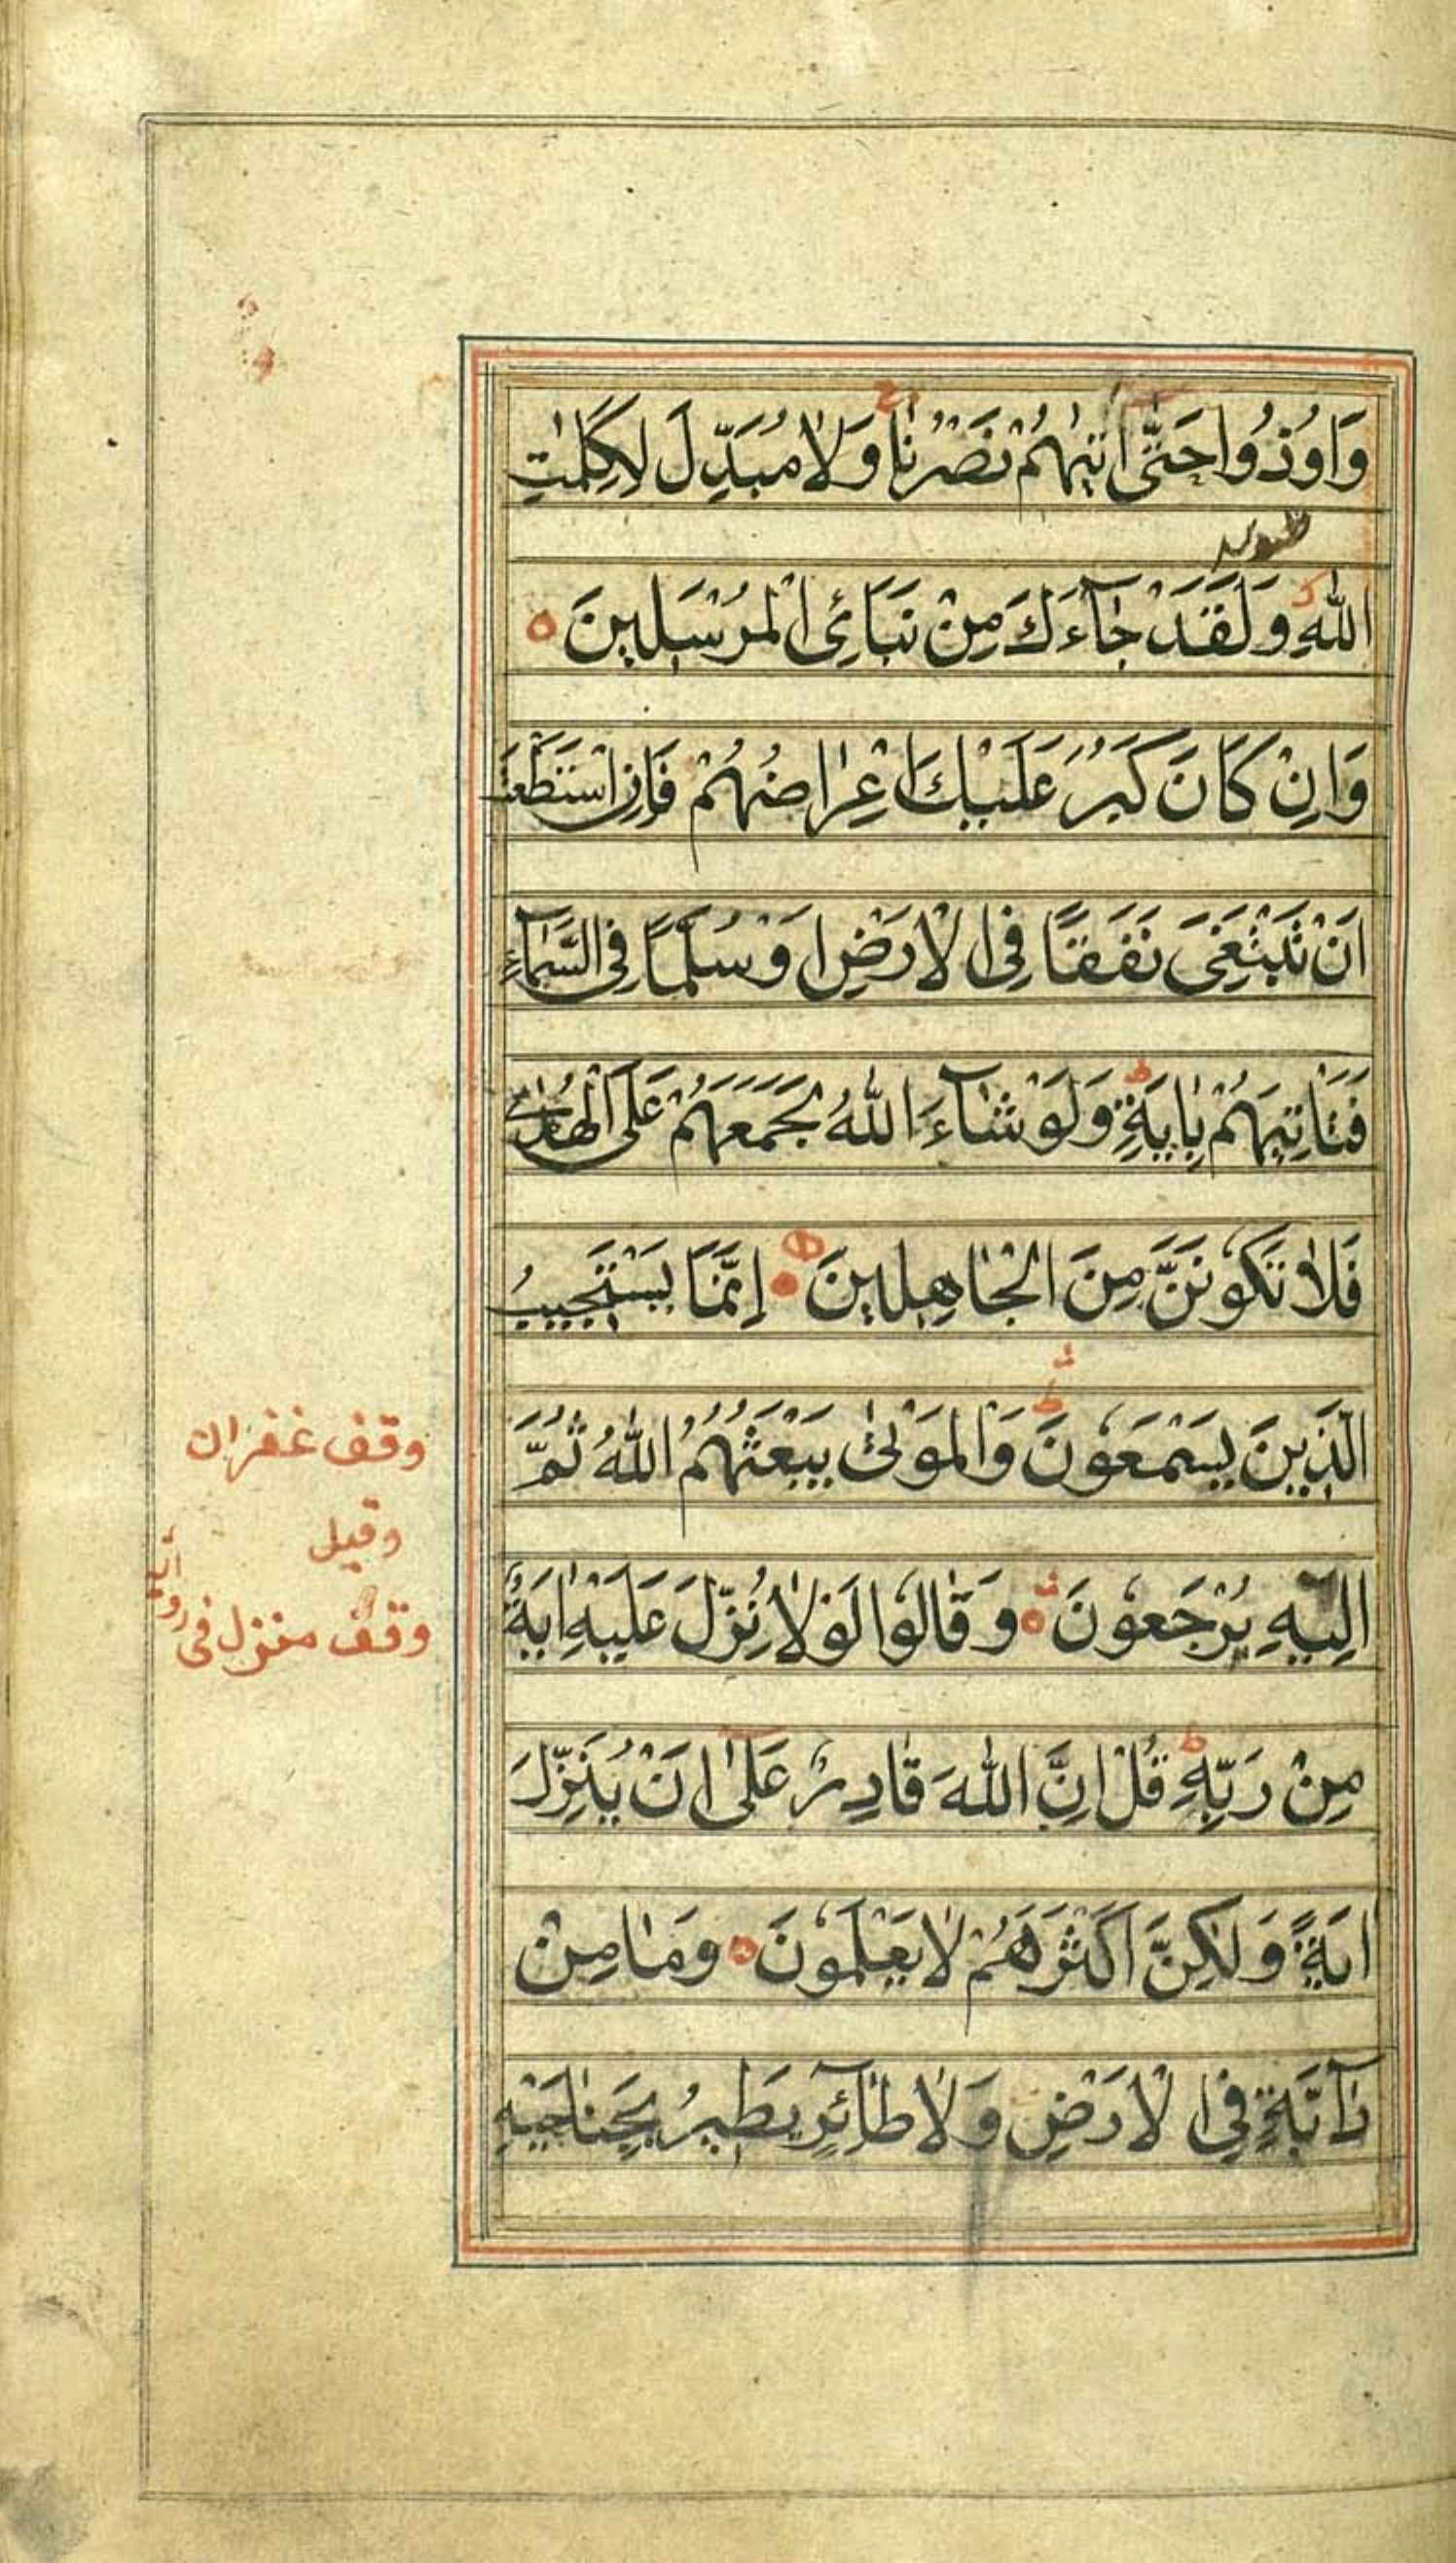 وَاُوْذُوْا حَتّٰى اَتٰىهُمْ نَصْرُنَا وَلَا مُبَدِّلَ لِكَلِمٰتِ
اللّٰهِ وَلَقَدْ جَآءَكَ مِنْ نَبَائِ الْمُرْسَلِينَ
وَاِنْ كَانَ كَبُرَ عَلَيْكَ اِعْرَاضُهُمْ فَاِنِ اسْتَطَعْتَ
اَنْ تَبْتَغِىَ نَفَقًا فِى الْاَرْضِ اَوْ سُلَّمًا فِى السَّمَآءِ
فَتَاْتِيَهُمْ بِاٰيَةٍ وَلَوْ شَآءَ اللّٰهُ لَجَمَعَهُمْ عَلَى الْهُدٰى
فَلَا تَكُوْنَنَّ مِنَ الْجَاهِلِينَ اِنَّمَا يَسْتَجِيبُ
الَّذِينَ يَسْمَعُوْنَ وَالْمَوْتٰى يَبْعَثُهُمُ اللّٰهُ ثُمَّ
اِلَيْهِ يُرْجَعُوْنَ وَقَالُوْا لَوْلَا نُزِّلَ عَلَيْهِ اٰيَةٌ
مِنْ رَبِّهٖ قُلْ اِنَّ اللّٰهَ قَادِرٌ عَلٰى اَنْ يُنَزِّلَ
اٰيَةً وَلٰكِنَّ اَكْثَرَهُمْ لَا يَعْلَمُوْنَ وَمَا مِنْ
دَآبَّةٍ فِى الْاَرْضِ وَلَا طَآئِرٍ يَطِيرُ بِجَنَاحَيْهِ
وقف غفران
وقيل
وقف منزل فى